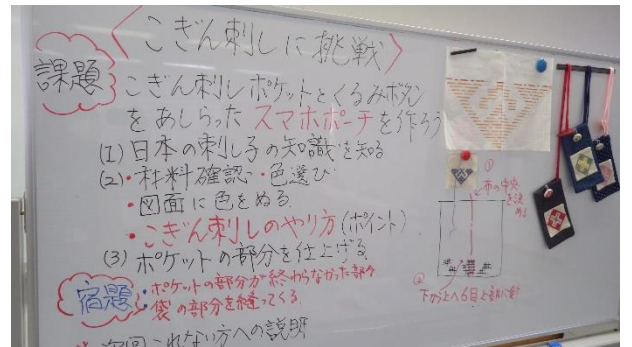 〈こぎん刺しに挑戦〉
課題
こぎん刺しポケットとくるみボタン
をあしらったスマホポーチを作ろう
(1) 日本の刺し子の知識を知る
(2)・材料確認・色選び
・図面に色をぬる
・こぎん刺しのやり方(ポイント)
(3) ポケットの部分を仕上げる
宿題:ポケットの部分が終わらなかった部分
袋の部分を縫ってくる
次回これない方への説明
①
布の中央
を決
める
②
下から上へ6目上